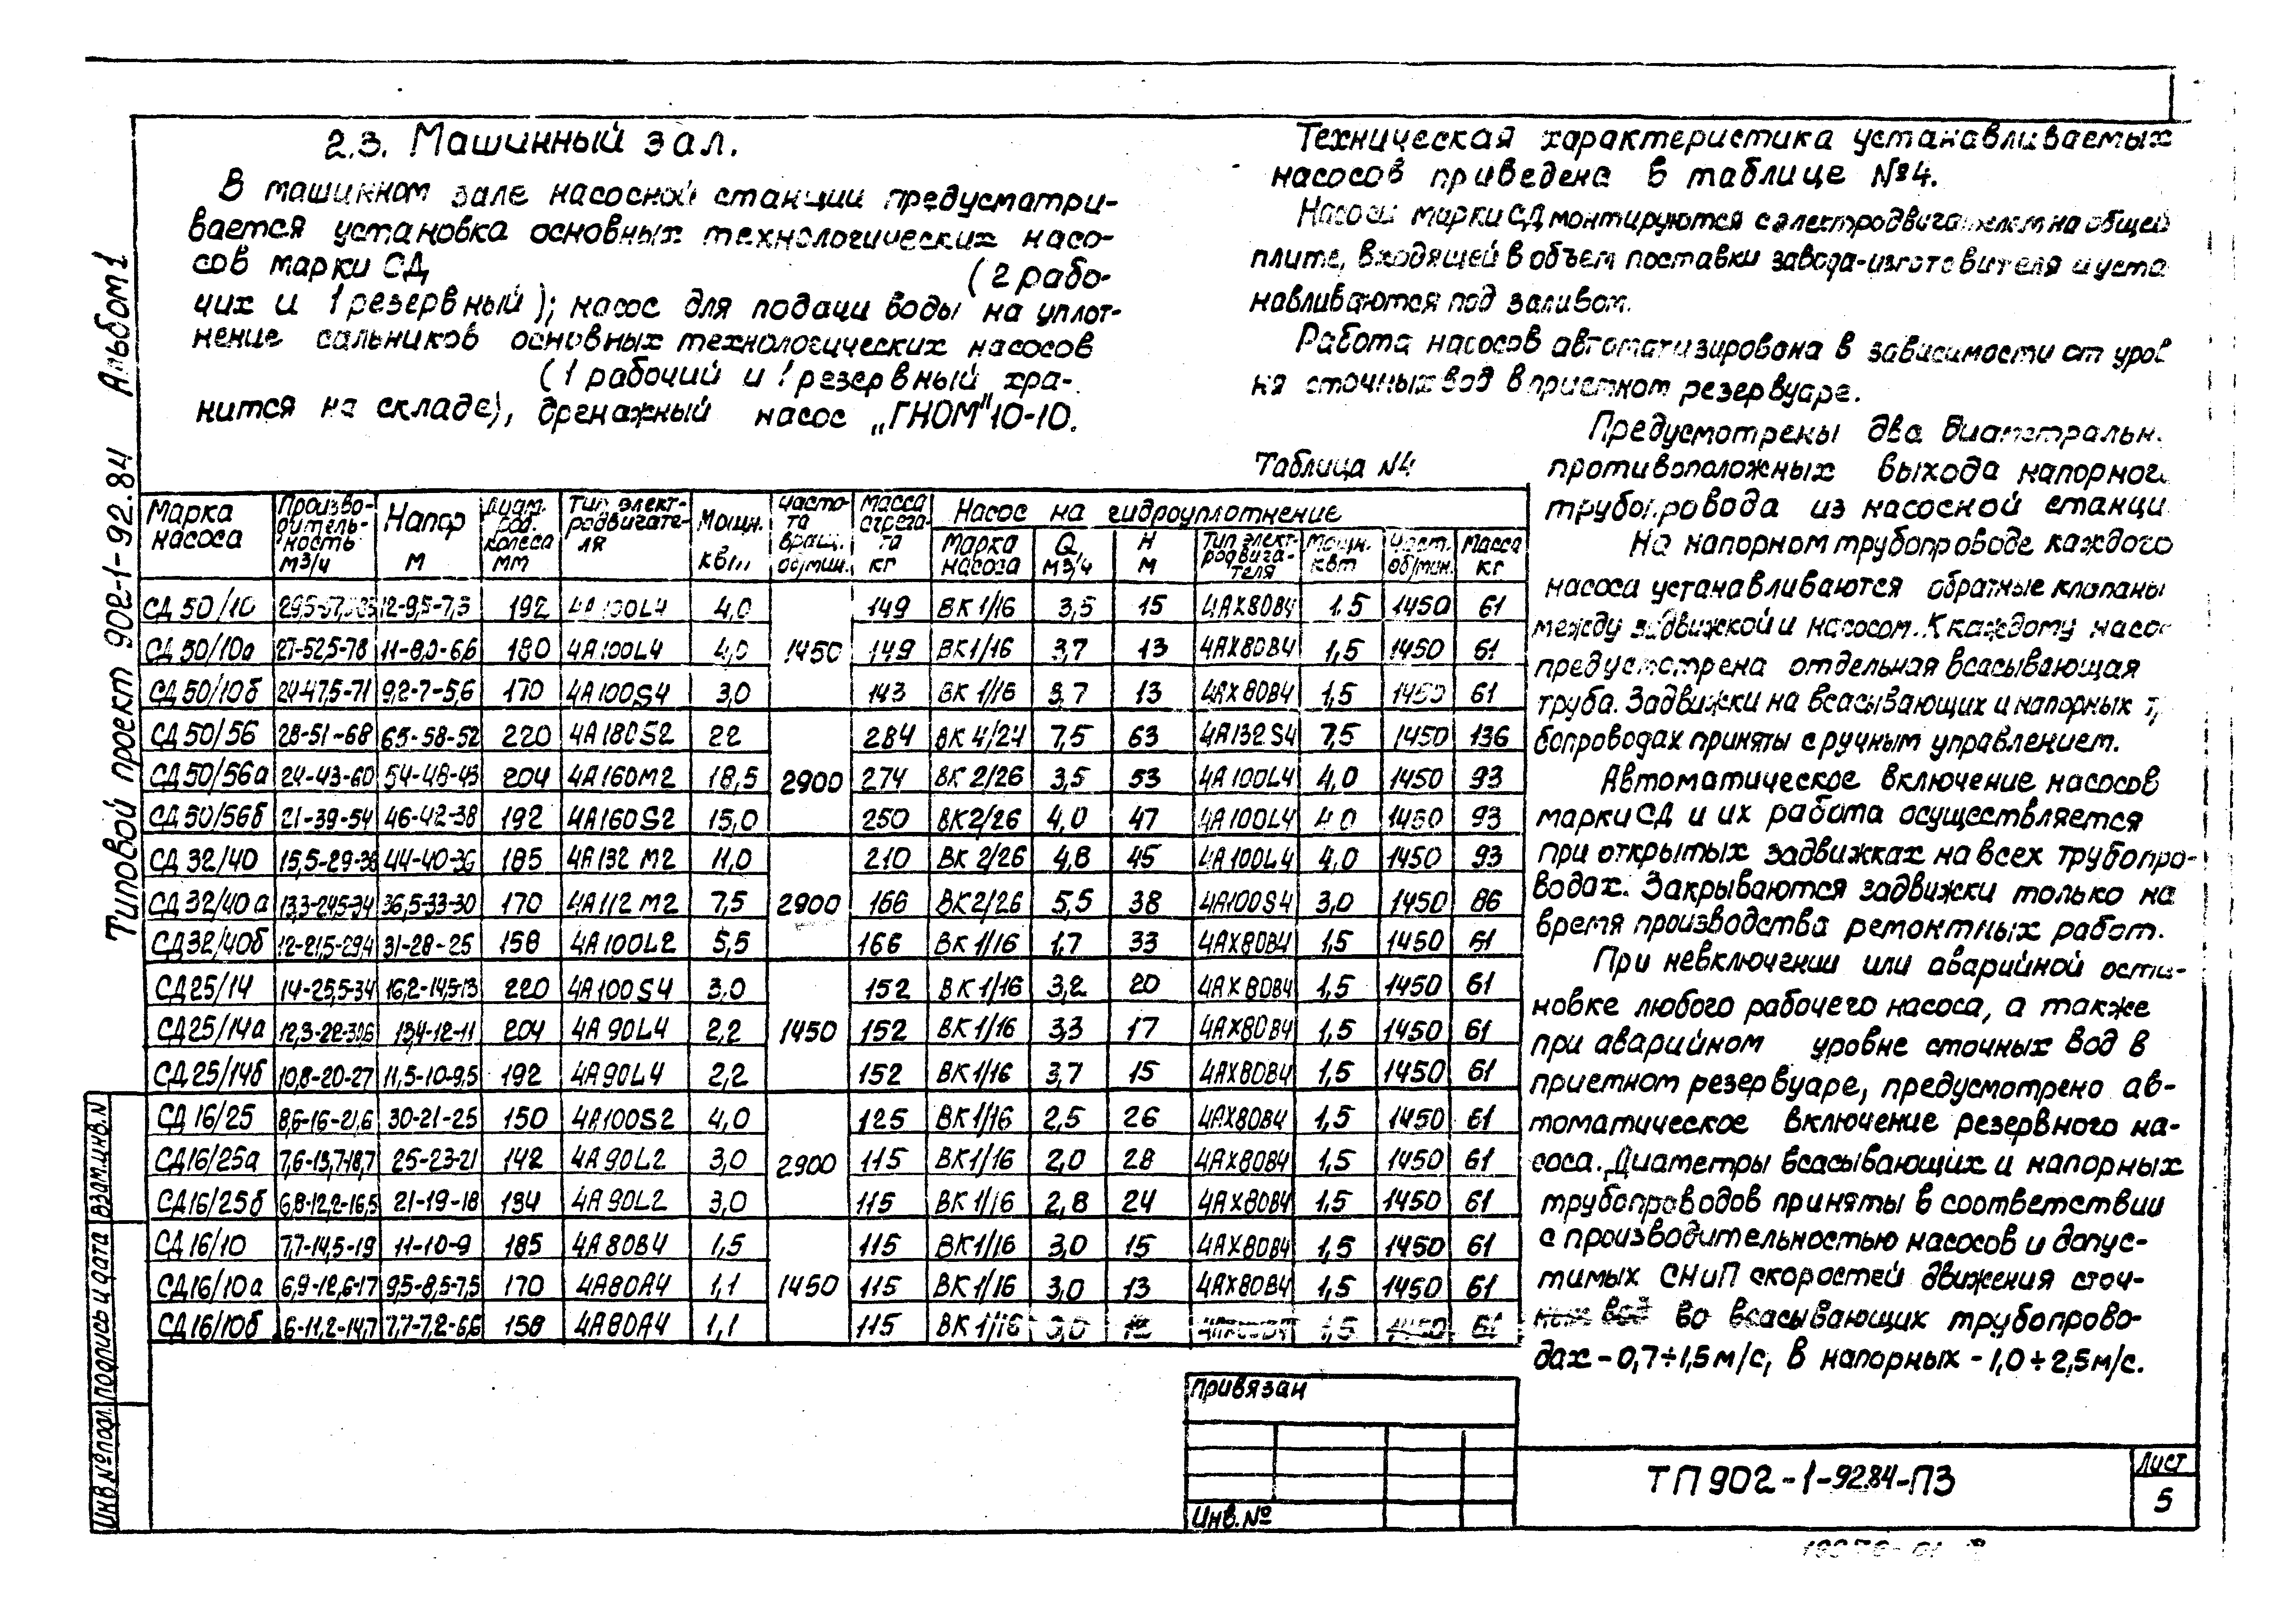 2.3. Машинный зал.
В машинном зале насосной станции предусматри-
вается установка основных технологических насо-
сов марки СД (2 рабо-
чих и 1 резервный); насос для подачи воды на уплот-
нение сальников основных технологических насосов
(1 рабочий и 1 резервный хра-
нится на складе), дренажный насос „ГНОМ" 10-10.
Техническая характеристика устанавливаемых
насосов приведена в таблице №4.
Насосы марки СД монтируются с электродвигателем на общей
плите, входящей в объем поставки завода-изготовителя и уста
навливаются под заливом.
Работа насосов автоматизирована в зависимости от уров
ня сточных вод в приемном резервуаре.
Предусмотрены два диаметральн.
противоположных выхода напорног
трубопровода из насосной станци
На напорном трубопроводе каждого
насоса устанавливаются обратные клапаны
между задвижкой и насосом. К каждому насос
предусмотрена отдельная всасывающая
труба. Задвижки на всасывающих и напорных т
бопроводах приняты с ручным управлением.
Автоматическое включение насосов
марки СД и их работа осуществляется
при открытых задвижках на всех трубопро-
водах. Закрываются задвижки только на
время производства ремонтных работ.
При невключении или аварийной оста-
новке любого рабочего насоса, а также
при аварийном уровне сточных вод в
приемном резервуаре, предусмотрено ав-
томатическое включение резервного на-
соса. Диаметры всасывающих и напорных
трубопроводов приняты в соответствии
с производительностью насосов и допус-
тимых СНиП скоростей движения сточ-
ных вод во всасывающих трубопрово-
дах - 0,7÷1,5 м/с, в напорных - 1,0÷2,5 м/с.
Таблица №4
Марка насоса | Произво-дитель-ность м3/ч | Напор м | Диам. раб. колеса мм | Тип элект-родвигате-ля | Мощн. квт | Часто-та вращ. об/мин. | Масса агрега-та кг | Насос на гидроуплотнение
Марка насоса | Q м3/ч | Н м | Тип элект-родвига-теля | Мощн. квт | Част. об/мин. | Масса кг
СД 50/10 12-9,5-7,3 192 4А100L4 4,0 149 ВК 1/16 3,5 15 4АХ80В4 1,5 1450 61
СД 50/10а 27-52,5-78 11-8,0-6,6 180 4А100L4 4,0 1450 149 ВК1/16 3,7 13 4АХ80В4 1,5 1450 61
СД 50/10б 24-47,5-71 9,2-7-5,6 170 4А100S4 3,0 143 ВК 1/16 3,7 13 4АХ80В4 1,5 1450 61
СД 50/56 28-51-68 65-58-52 220 4А180S2 22 284 ВК 4/24 7,5 63 4А132S4 7,5 1450 136
СД 50/56а 24-43-60 54-48-43 204 4А160М2 18,5 2900 274 ВК 2/26 3,5 53 4А100L4 4,0 1450 93
СД 50/56б 21-39-54 46-42-38 192 4А160S2 15,0 250 ВК2/26 4,0 47 4А100L4 4,0 1450 93
СД 32/40 15,5-29-38 44-40-36 185 4А132 М2 11,0 210 ВК 2/26 4,8 45 4А100L4 4,0 1450 93
СД 32/40а 13,3-24,5-34 36,5-33-30 170 4А112 М2 7,5 2900 166 ВК2/26 5,5 38 4А100S4 3,0 1450 86
СД 32/40б 12-21,5-29,4 31-28-25 158 4А100L2 5,5 166 ВК 1/16 1,7 33 4АХ80В4 1,5 1450 61
СД 25/14 14-25,5-34 16,2-14,5-13 220 4А100S4 3,0 152 ВК1/16 3,2 20 4АХ80В4 1,5 1450 61
СД 25/14а 12,3-22-30,6 13,4-12-11 204 4А 90L4 2,2 1450 152 ВК1/16 3,3 17 4АХ80В4 1,5 1450 61
СД 25/14б 10,8-20-27 11,5-10-9,5 192 4А90L4 2,2 152 ВК1/16 3,7 15 4АХ80В4 1,5 1450 61
СД 16/25 8,6-16-21,6 30-21-25 150 4А100S2 4,0 125 ВК1/16 2,5 26 4АХ80В4 1,5 1450 61
СД16/25а 7,6-13,7-18,7 25-23-21 142 4А90L2 3,0 2900 115 ВК1/16 2,0 28 4АХ80В4 1,5 1450 61
СД16/25б 6,8-12,2-16,5 21-19-18 134 4А 90L2 3,0 115 ВК 1/16 2,8 24 4АХ80В4 1,5 1450 61
СД 16/10 7,7-14,5-19 11-10-9 185 4А80В4 1,5 115 ВК1/16 3,0 15 4АХ80В4 1,5 1450 61
СД16/10а 6,9-12,6-17 9,5-8,5-7,5 170 4А80А4 1,1 1450 115 ВК 1/16 3,0 13 4АХ80В4 1,5 1450 61
СД16/10б 6-11,2-14,7 7,7-7,2-6,6 158 4А80А4 1,1 115 ВК 1/16 3,0 1,5 1450 61
Типовой проект 902-1-92.84 Альбом 1
Взам.инв.N
Подпись и дата
Инв.№подл.
Привязан
Инв.№
ТП 902-1-92.84-ПЗ
Лист
5